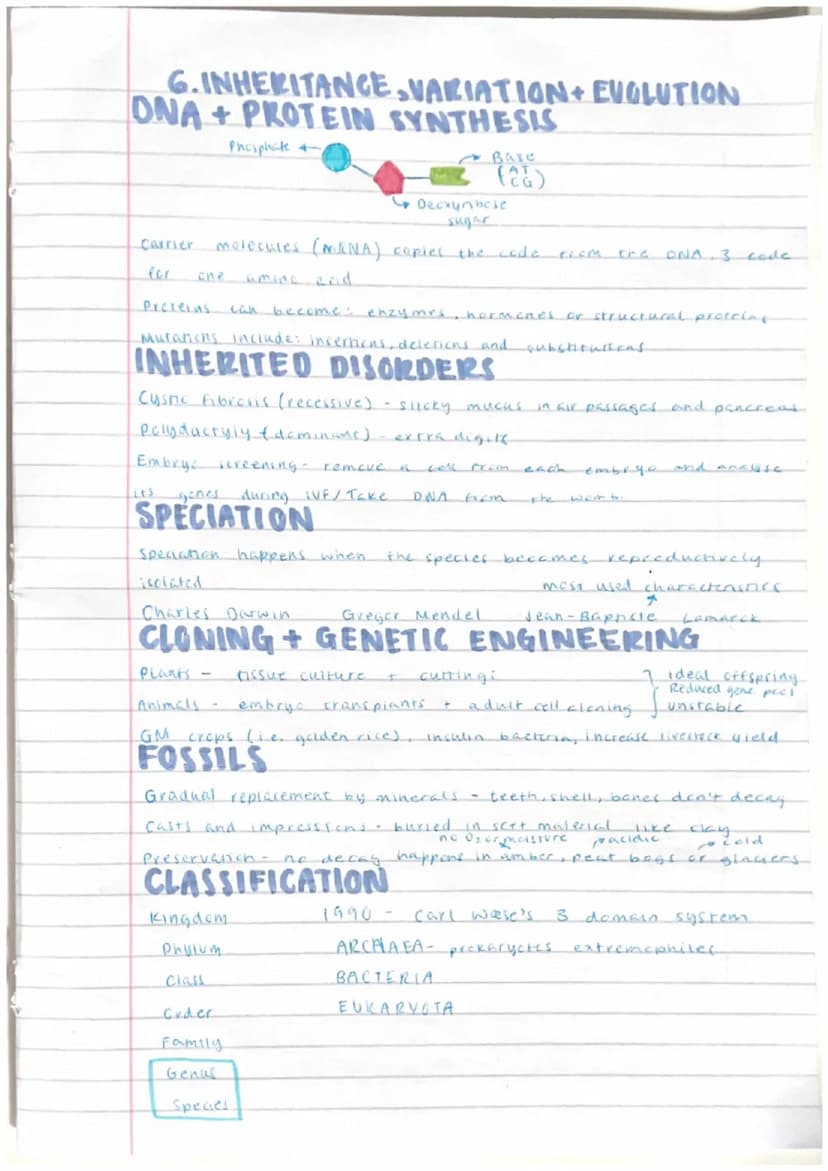 6. INHERITANCE, VARIATION + EVOLUTION
DNA + PROTEIN SYNTHESIS
Phosphate
Base
(AT
CG)
Deoxyribose
sugar
Carrier molecules (mRNA) copies the code from the DNA. 3 code
for one amino acid
Proteins can become: enzymes, hormones or structural proteins
Mutations include: insertions, deletions and substitutions
INHERITED DISORDERS
Cystic fibrosis (recessive) - sticky mucus in air passages and pancreas
Polydactyly (dominant) - extra digits
Embryo screening - remove a cell from each embryo and analyse
its genes during IVF/Take DNA from the womb.
SPECIATION
Speciation happens when the species becomes reproductively
isolated
most used characteristics
Charles Darwin Gregor Mendel Jean-Baptiste Lamarck
CLONING + GENETIC ENGINEERING
Plants - tissue culture + cuttings
ideal offspring
Reduced gene pool
Animals - embryo transplants + adult cell cloning
unstable
GM crops (i.e. golden rice), insulin bacteria, increase livestock yield
FOSSILS
Gradual replacement by minerals - teeth, shell, bones don't decay
Casts and impressions - buried in soft material like clay
no O2 or moisture acidic cold
Preservation - no decay happens in amber, peat bogs or glaciers
CLASSIFICATION
Kingdom 1990 - Carl Woese's 3 domain system
Phylum ARCHAEA - prokaryotes extremophiles
Class BACTERIA
Order EUKARYOTA
Family
Genus
Species